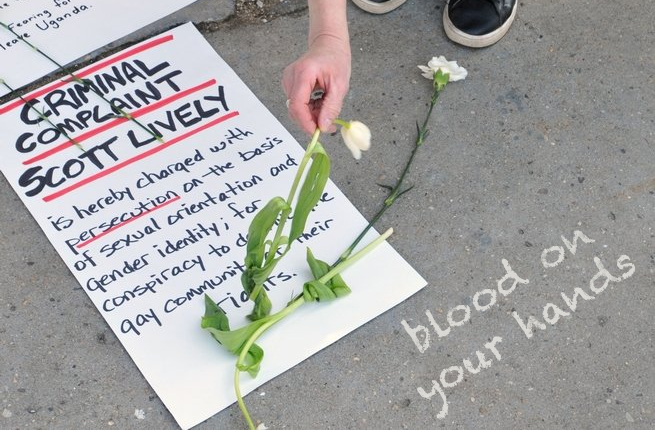 Fearing for
leave Uganda.
CRIMINAL
COMPLAINT
SCOTT LIVELY
is hereby charged with
persecution on the basis
of sexual orientation and
gender identity; for
conspiracy to
gay communit their
rights.
blood on
your hands